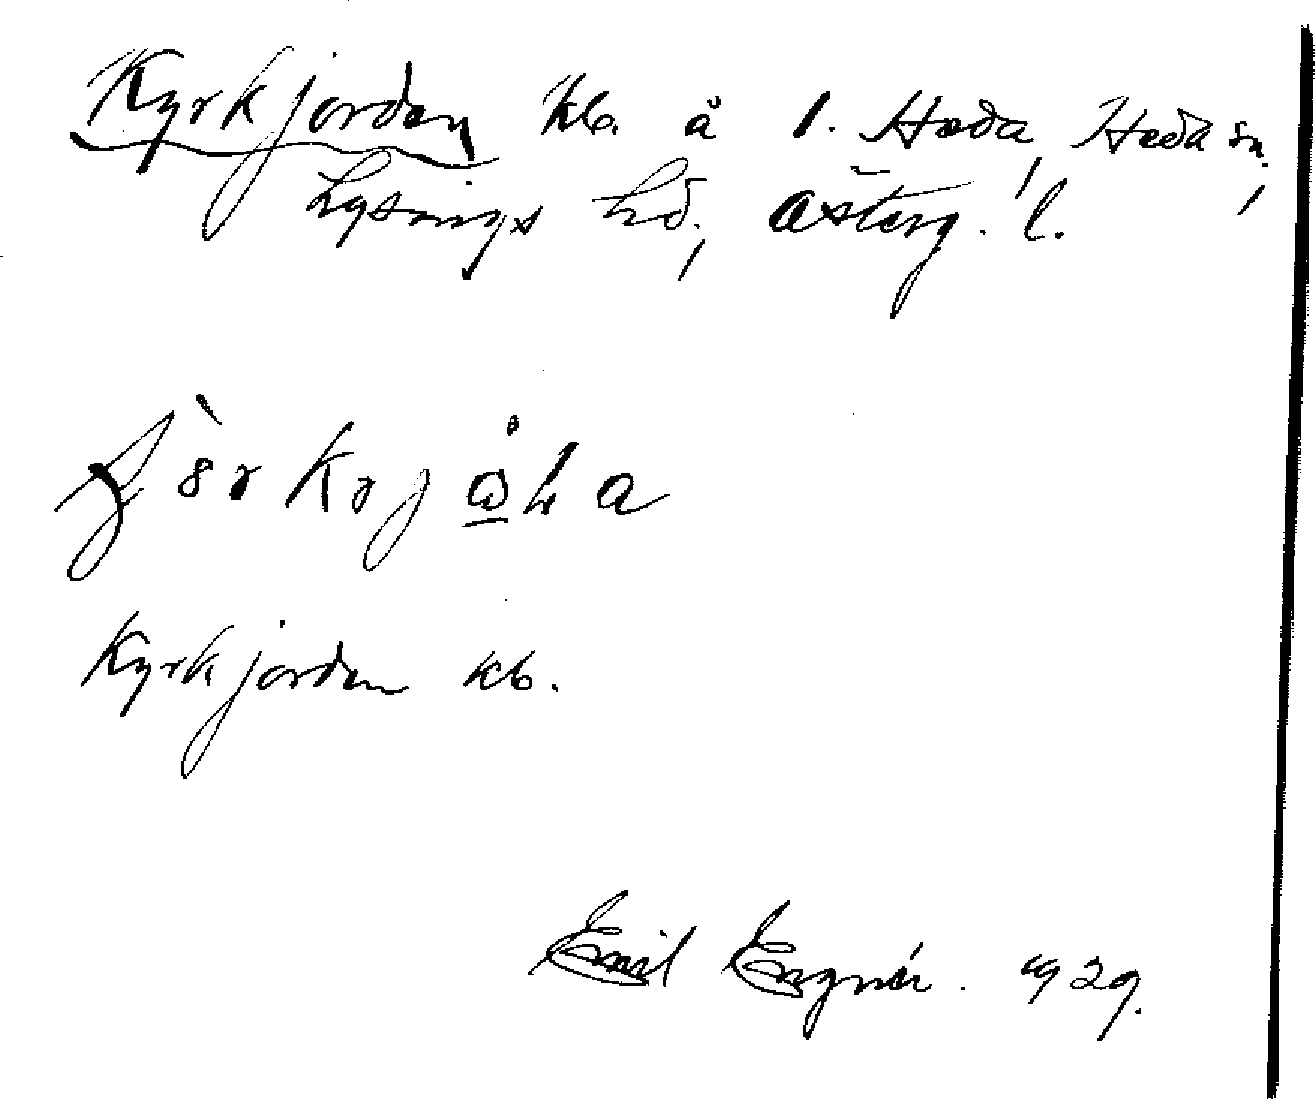 Kyrkjorden kb. å 1. Heda, Heda sn,
Lysings hd, Österg. l.
Kyrkjorden kb.
Emil Engnér. 1929.